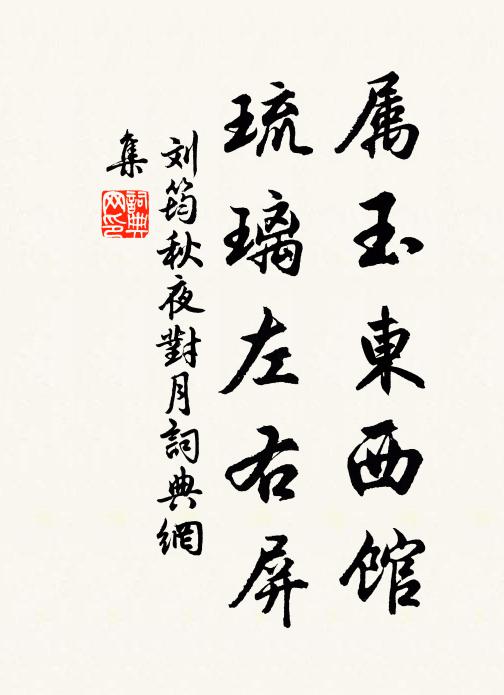 属玉東西馆
琉璃左右屏
刘筠秋夜對月詞典網
集
詞典
网印